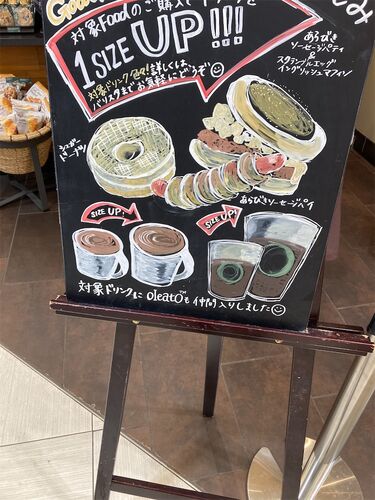 Good
対象Foodのご購入で
1 SIZE UP!!!
対象ドリンク色々!詳しくは、
バリスタまでお気軽にどうぞ☺
あらびき
ソーセージパティ
&
スクランブルエッグ
イングリッシュマフィン
シュガー
ドーナツ
あらびきソーセージパイ
SIZE UP!
SIZE UP!
対象ドリンクに oleato™も仲間入りしました☺